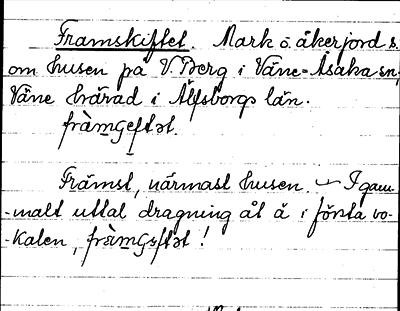 Framskiftet Mark ö. åkerjord s.
om husen på V. Berg i Väne-Åsaka sn,
Väne härad i Älfsborgs län.
Främst, närmast husen. I gam-
-malt uttal dragning åt ä i första vo-
-kalen,